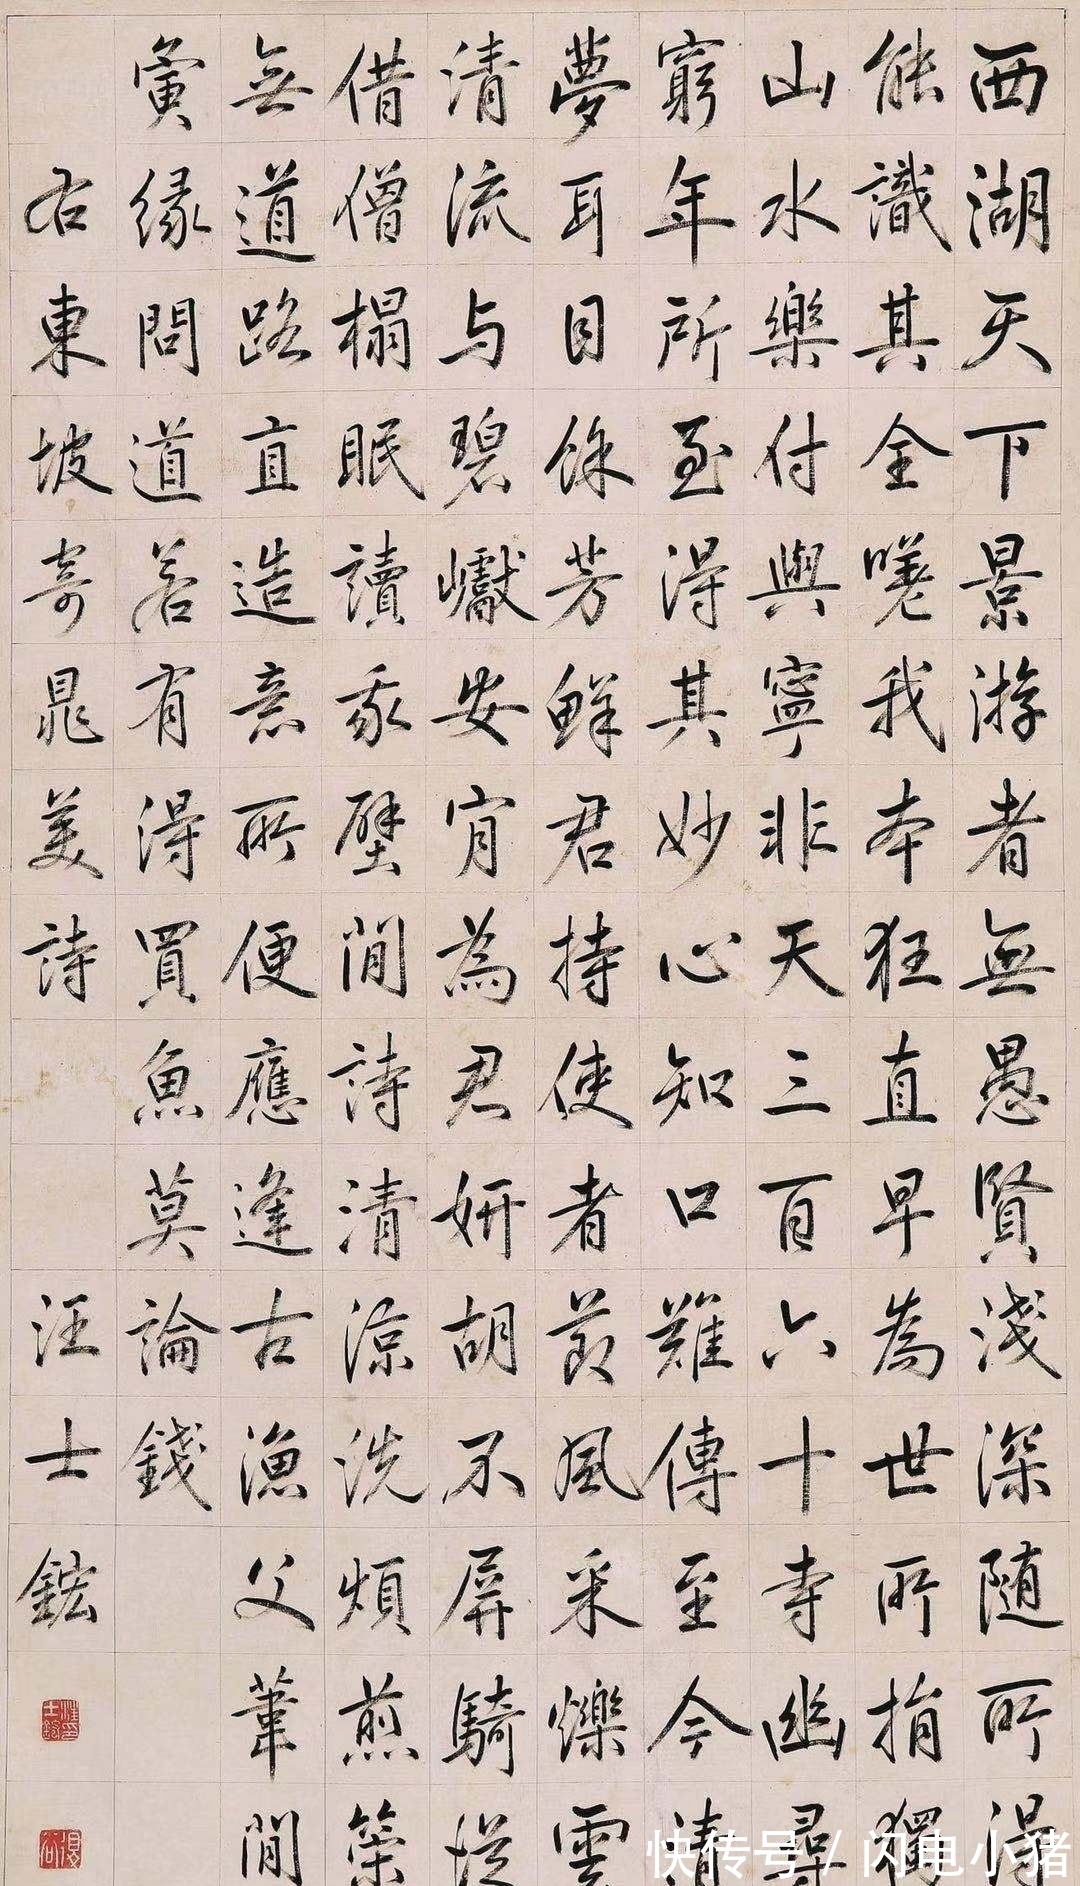 西湖天下景游者無愚賢淺深随所得
能識其全嗟我本狂直早為世所捐獨
山水樂付與寧非天三百六十寺幽尋
窮年所至得其妙心知口難傳至今清
夢耳目餘芳鮮君持使者節風采爍雲
清流与碧巘安肯為君妍胡不屏騎從
借僧榻眠讀我壁間詩清涼洗煩煎策
無道路直造意所便應逢古漁父葦間
夤緣問道若有得買魚莫論錢
右東坡寄晁美詩
汪士鋐
快传号/闪电小猪